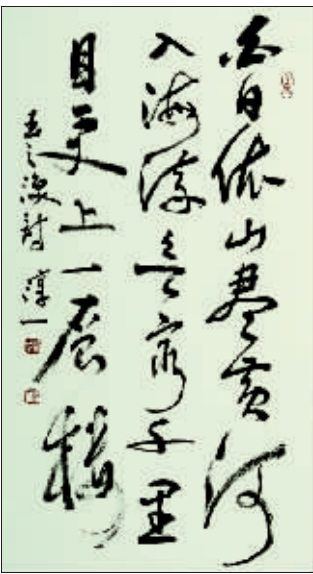 白日依山盡黄河
入海流欲窮千里
目更上一层楼
王之涣詩 淳一